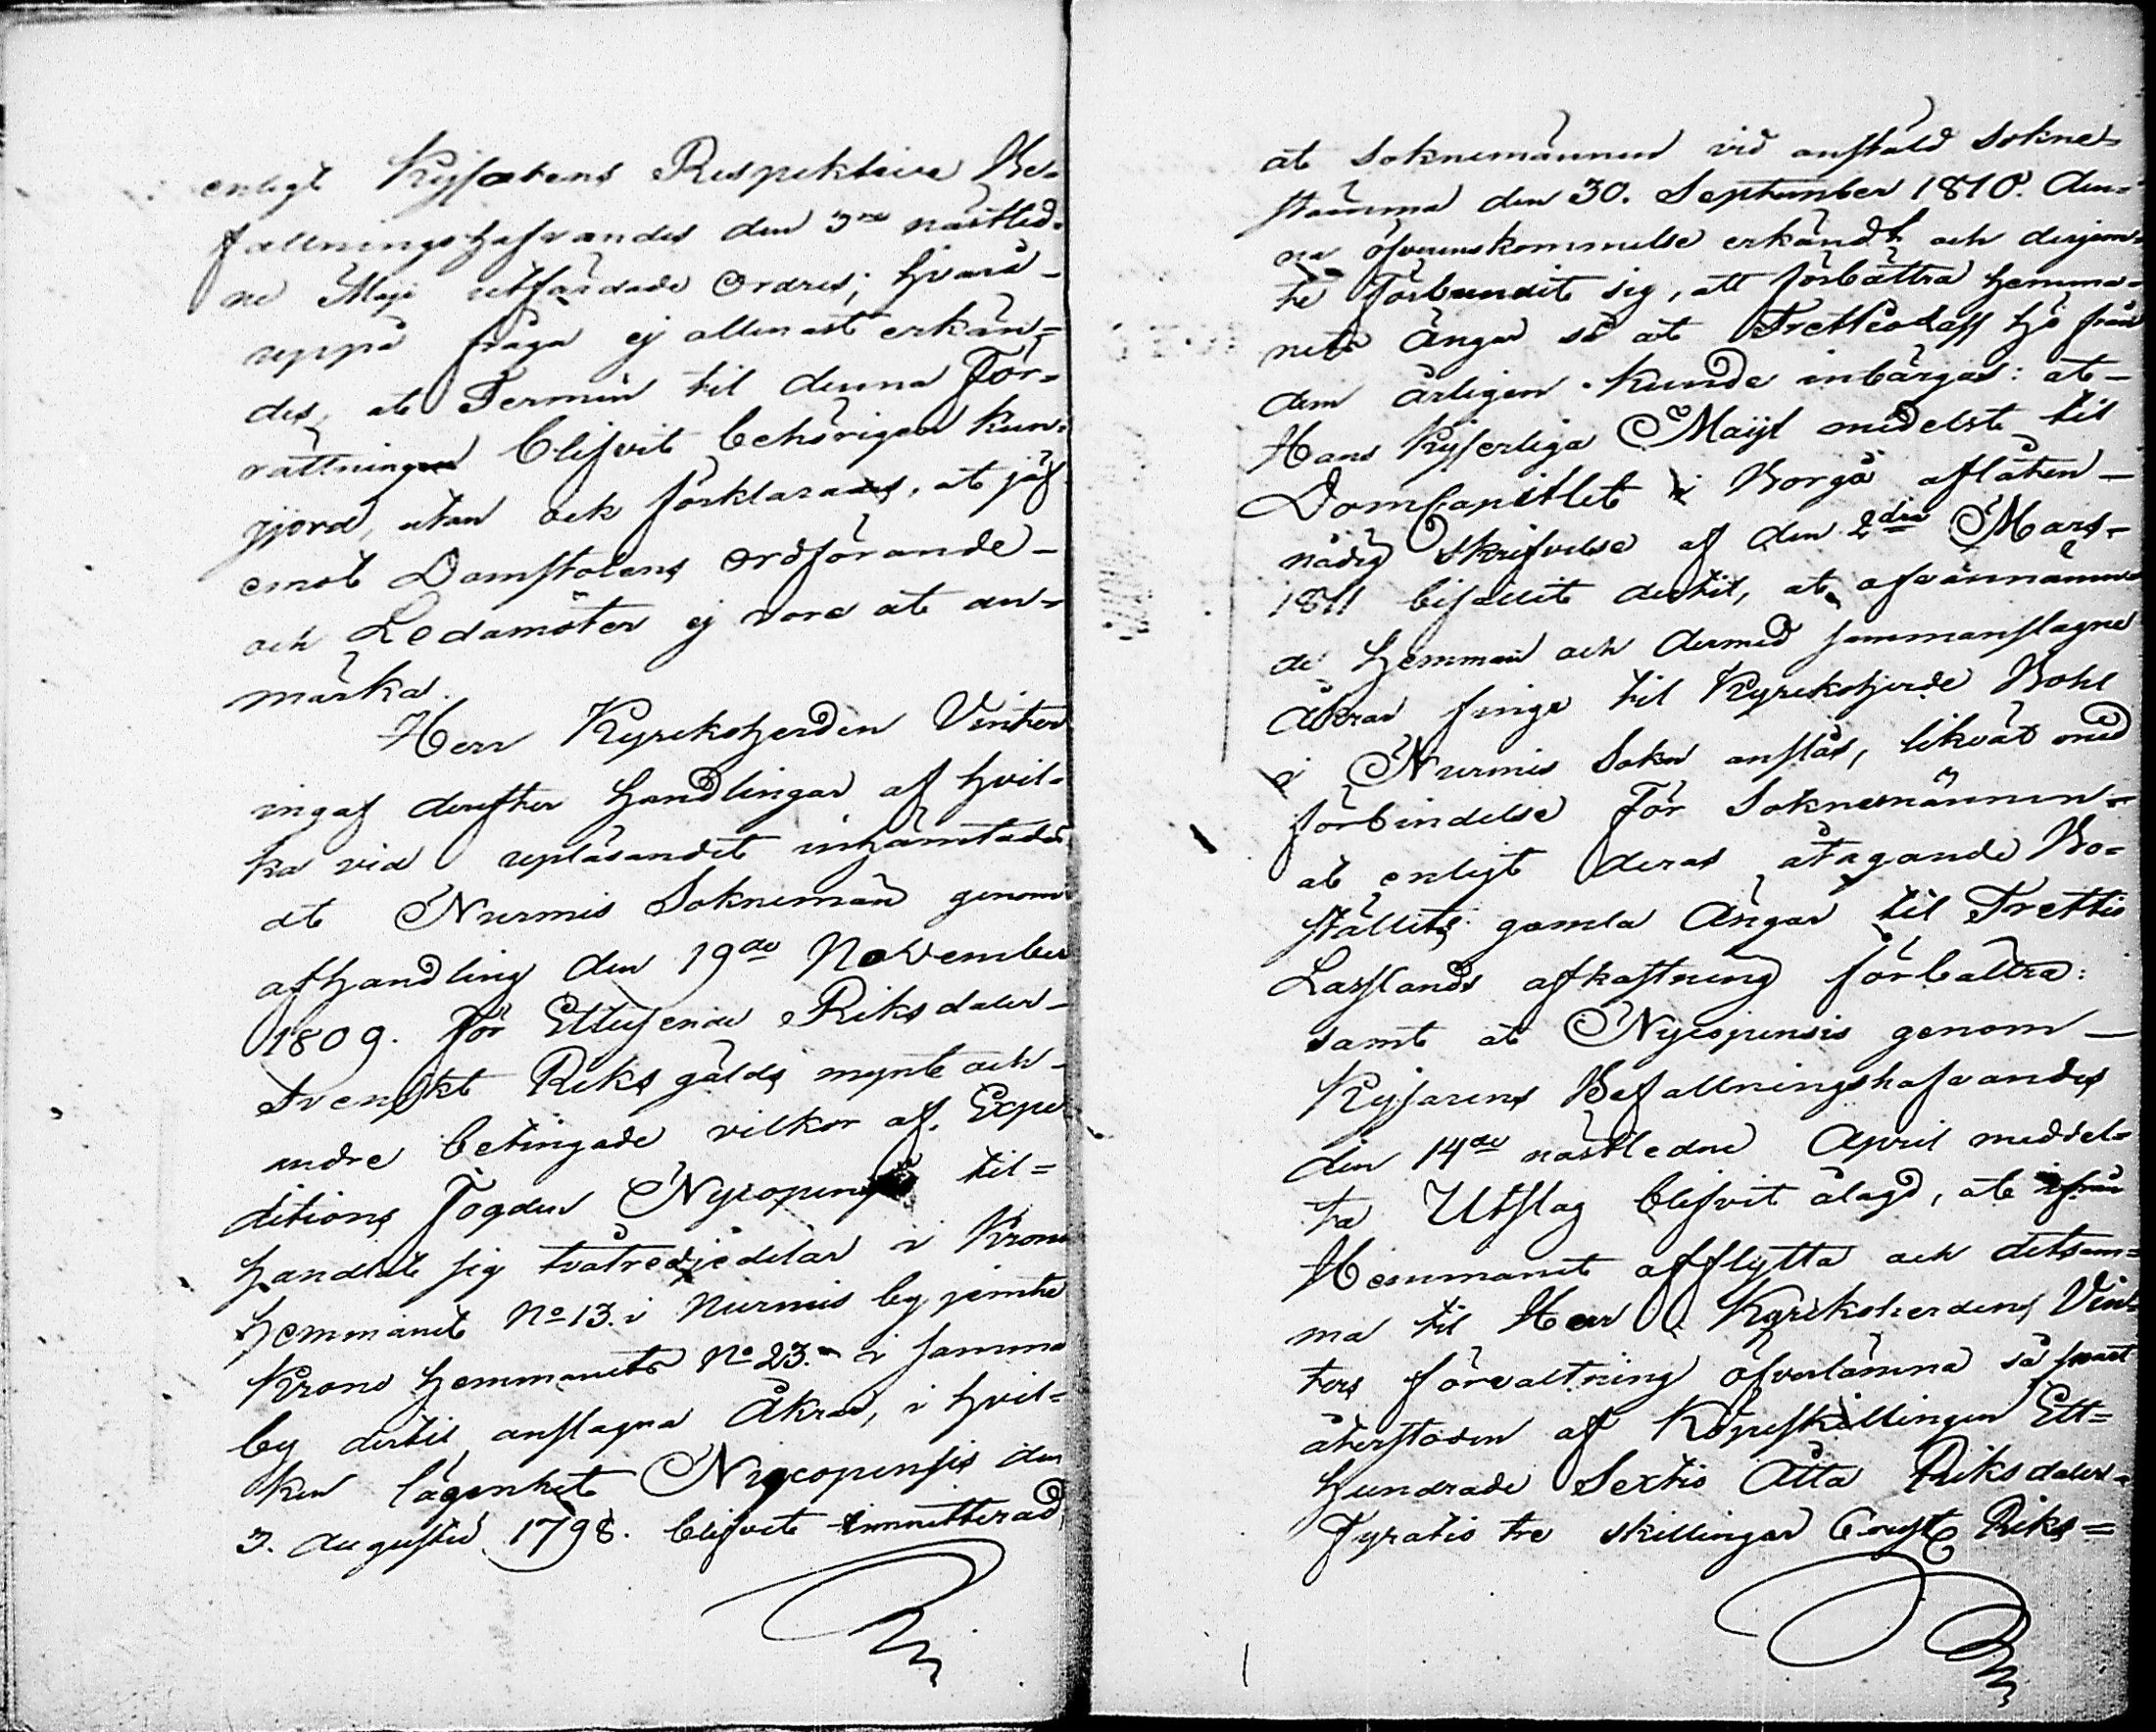 enligt Kejsarens Respektive Be-
fallningshafvandes den 3ne nästled-
ne Maji utfärdade Ordres; hvarå-
uppå fråga ej allenast erkän-
des, at Termin til denna För-
rättningen blifvit behörigen kun-
gjord, utan ock förklarades, at jäf
emot Domstolens Ordförande-
och Ledamöter ej vore at an-
märka.
Herr Kyrckoherden Vinter
ingaf derefter Handlingar af hvil-
ka vid upläsandet inhämtades
at Nurmis Soknemän genom
afhandling den 19de November
1809. för Ettusende Riksdaler-
Svenskt Riksgälds mynt och-
andre betingade vilkor af Expe
ditions Fogden Nycopensis til-
handlat sig tvåtredjedelar i Krono
Hemmanet No 13. i Nurmis by jemte
Krono Hemmanets No 23. i samma
by dertil anslagna Åkrar, i hvil-
ken lägenhet Nycopensis den
3. Augustii 1798. blifvit immitterad,
at Soknemännen vid anstäld Sokne-
stämma den 30. September 1810. den-
na öfverenskommelse erkändt och derjem-
te Förbundit sig, att förbättra hemma-
nets Ängar så at Trettio lass hö från
dem årligen kunde inbärgas: at-
Hans Kejserliga Maijt medelst til
DomCapitlet i Borgå aflåten-
nådig Skrifvelse af den 2dra Mars-
1811 bifallit dertil, at ofvannämn
de Hemman och dermed sammanslagne
Åkrar finge til Kyrckoherde Bohl
i Nurmis Sokn anslås, likväl med
förbindelse För Soknemännen-
at enligt deras åtagande Bo-
ställets gamla Ängar til Trettio
Lasslands afkastning förbättra:
samt at Nycopensis genom-
Kejsarens Befallningshafvandes
den 14de nästledne April meddel-
ta Utslag blifvit ålagd, at ifrån
Hemmanet afflytta och detsam-
ma til Herr Kyrkoherdens Vin-
ters förvaltning öfverlämna så snart
återstoden af Köpeskillingen Ett-
hundrade Sextio Åtta Riksdaler-
Fyratio tre skillingar Riks-